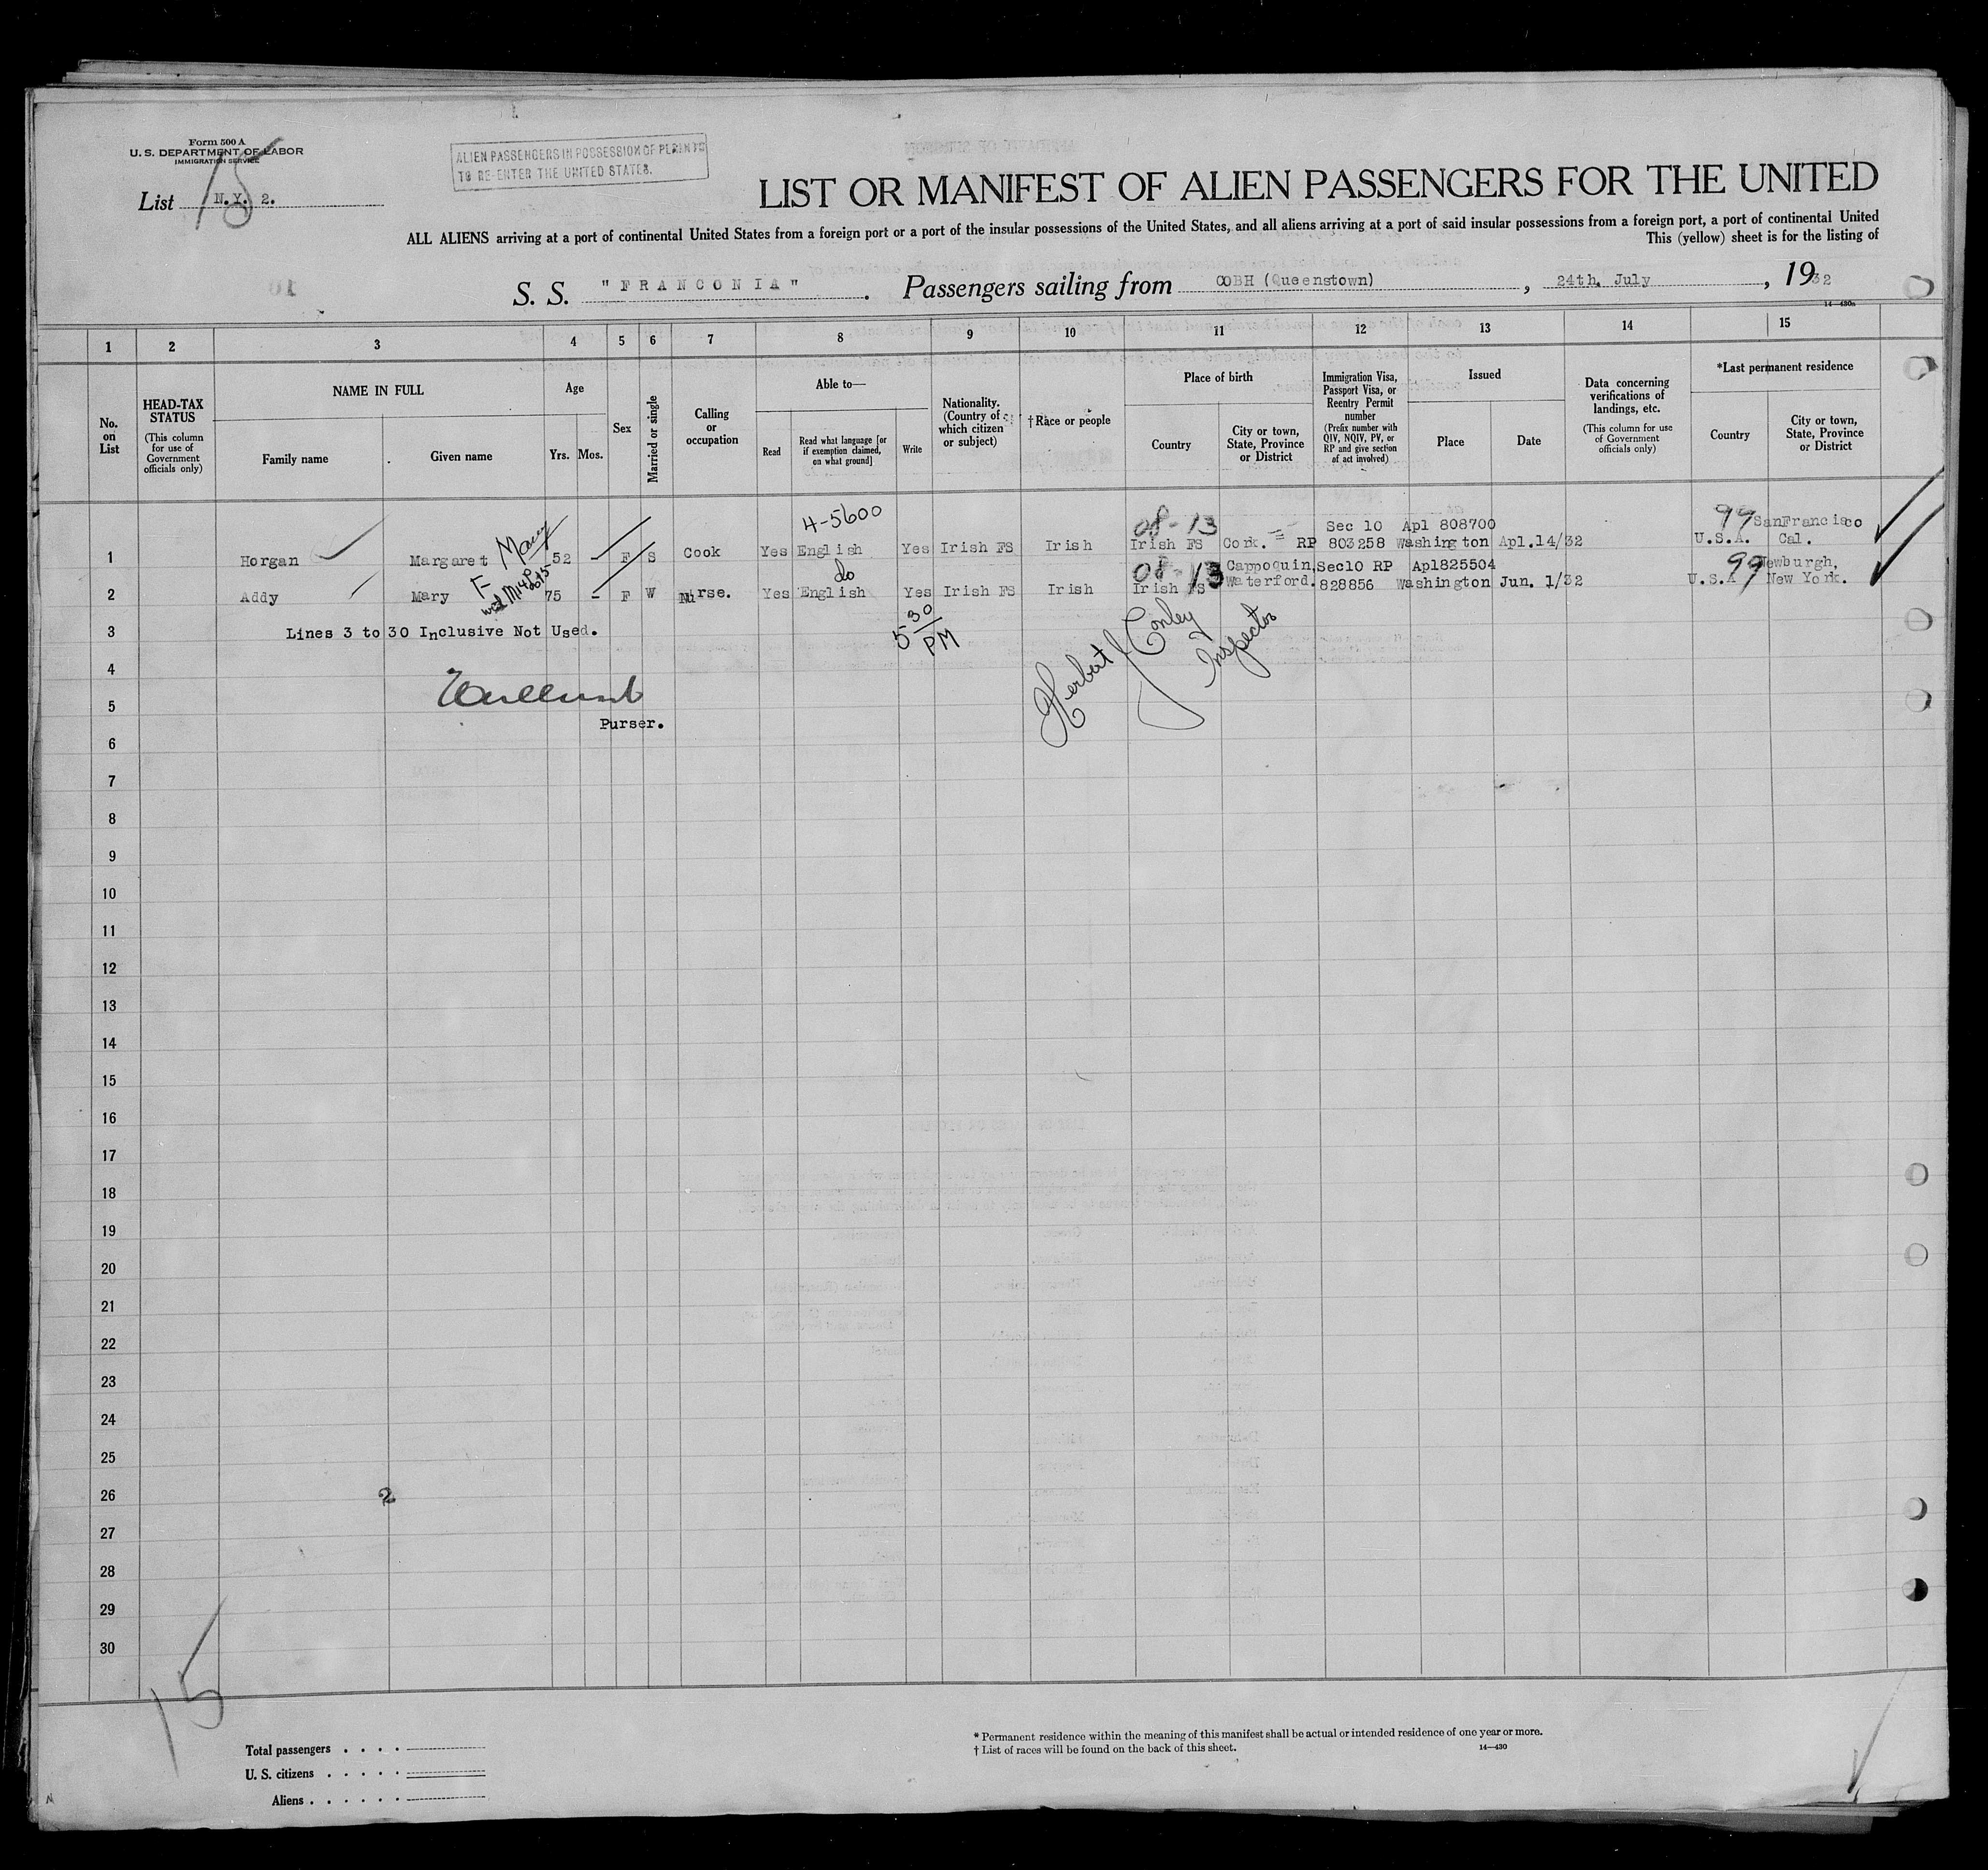 Form 500 A
U. S. DEPARTMENT OF LABOR
IMMIGRATION SERVICE
List N.Y. 2.
15
ALIEN PASSENGERS IN POSSESSION OF PERMITS
TO RE-ENTER THE UNITED STATES.
LIST OR MANIFEST OF ALIEN PASSENGERS FOR THE UNITED
ALL ALIENS arriving at a port of continental United States from a foreign port or a port of the insular possessions of the United States, and all aliens arriving at a port of said insular possessions from a foreign port, a port of continental United
This (yellow) sheet is for the listing of
S. S. "FRANCONIA". Passengers sailing from COBH (Queenstown), 24th. July, 1932
14—430a
1 2 3 4 5 6 7 8 9 10 11 12 13 14 15
No. on List
HEAD-TAX STATUS
(This column for use of Government officials only)
NAME IN FULL
Family name
Given name
Age
Yrs. Mos.
Sex
Married or single
Calling or occupation
Able to—
Read
Read what language [or if exemption claimed, on what ground]
Write
Nationality. (Country of which citizen or subject)
† Race or people
Place of birth
Country
City or town, State, Province or District
Immigration Visa, Passport Visa, or Reentry Permit number
(Prefix number with QIV, NQIV, PV, or RP and give section of act involved)
Issued
Place
Date
Data concerning verifications of landings, etc.
(This column for use of Government officials only)
*Last permanent residence
Country
City or town, State, Province or District
4-5600
08-13
Sec 10 Apl 808700
99 SanFrancisco
1 Horgan Margaret Mary 52 — F S Cook Yes English Yes Irish FS Irish Irish FS Cork. RP 803258 Washington Apl.14/32 U.S.A. Cal.
do
08-13
Cappoquin, Sec10 RP Apl825504
99 Newburgh,
2 Addy Mary F 75 – F W Nurse. Yes English Yes Irish FS Irish Irish FS Waterford. 828856 Washington Jun. 1/32 U.S.A New York.
3 Lines 3 to 30 Inclusive Not Used.
5 30 PM
Herbert J Conley
Inspector
4
5
Purser.
6
7
8
9
10
11
12
13
14
15
16
17
18
19
20
21
22
23
24
25
26
2
27
28
29
30
15
Total passengers . . . .
U. S. citizens . . . . .
Aliens . . . . . .
* Permanent residence within the meaning of this manifest shall be actual or intended residence of one year or more.
† List of races will be found on the back of this sheet.
14—430